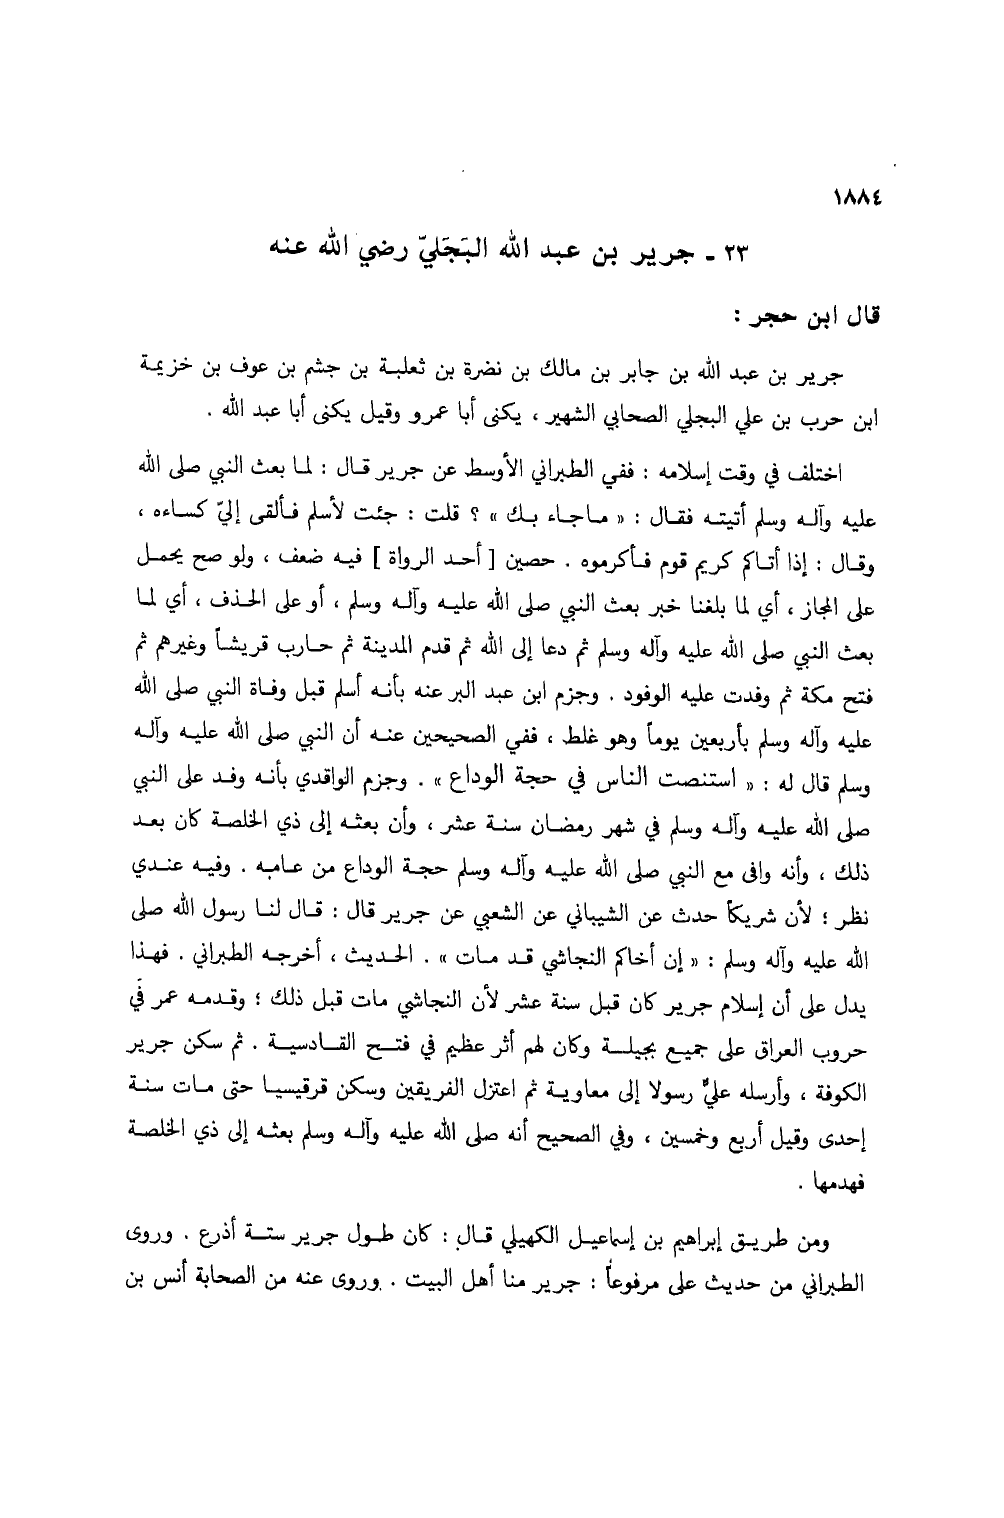 ١٨٨٤
٢٣ - جرير بن عبد الله البَجَليّ رضي الله عنه
قال ابن حجر :
جرير بن عبد الله بن جابر بن مالك بن نضرة بن ثعلبة بن جشم بن عوف بن خزيمة
ابن حرب بن علي البجلي الصحابي الشهير ، يكنى أبا عمرو وقيل يكنى أبا عبد الله .
اختلف في وقت إسلامه : ففي الطبراني الأوسط عن جرير قال : لما بعث النبي صلى الله
عليه وآله وسلم أتيته فقال : « ماجاء بك » ؟ قلت : جئت لأسلم فألقى إليّ كساءه ،
وقال : إذا أتاكم كريم قوم فأكرموه . حصين [ أحد الرواة ] فيه ضعف ، ولو صح يحمل
على المجاز ، أي لما بلغنا خبر بعث النبي صلى الله عليه وآله وسلم ، أو على الحذف ، أي لما
بعث النبي صلى الله عليه وآله وسلم ثم دعا إلى الله ثم قدم المدينة ثم حارب قريشاً وغيرهم ثم
فتح مكة ثم وفدت عليه الوفود . وجزم ابن عبد البر عنه بأنه أسلم قبل وفاة النبي صلى الله
عليه وآله وسلم بأربعين يوماً وهو غلط ، ففي الصحيحين عنه أن النبي صلى الله عليه وآله
وسلم قال له : « استنصت الناس في حجة الوداع » . وجزم الواقدي بأنه وفد على النبي
صلى الله عليه وآله وسلم في شهر رمضان سنة عشر ، وأن بعثه إلى ذي الخلصة كان بعد
ذلك ، وأنه وافى مع النبي صلى الله عليه وآله وسلم حجة الوداع من عامه . وفيه عندي
نظر ؛ لأن شريكاً حدث عن الشيباني عن الشعبي عن جرير قال : قال لنا رسول الله صلى
الله عليه وآله وسلم : « إن أخاكم النجاشي قد مات » . الحديث ، أخرجه الطبراني . فهذا
يدل على أن إسلام جرير كان قبل سنة عشر لأن النجاشي مات قبل ذلك ؛ وقدمه عمر في
حروب العراق على جميع بجيلة وكان لهم أثر عظيم في فتح القادسية . ثم سكن جرير
الكوفة ، وأرسله عليٌّ رسولا إلى معاوية ثم اعتزل الفريقين وسكن قرقيسيا حتى مات سنة
إحدى وقيل أربع وخمسين ، وفي الصحيح أنه صلى الله عليه وآله وسلم بعثه إلى ذي الخلصة
فهدمها .
ومن طريق إبراهيم بن إسماعيل الكهيلي قال : كان طول جرير ستة أذرع . وروى
الطبراني من حديث على مرفوعاً : جرير منا أهل البيت . وروى عنه من الصحابة أنس بن